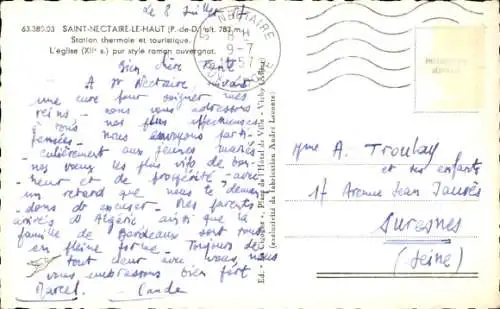 le 8 Juillet 57
63.380.03 SAINT-NECTAIRE-LE-HAUT (P.-de-D.) alt. 783 m.
Station thermale et touristique.
L'église (XIIe s.) pur style roman auvergnat.
ST NECTAIRE
9-7
57
Bien chère Tante
A St Nectaire, suivant
une cure pour soigner mes
reins - nous vous adressons
à vous nos plus affectueuses
pensées - Nous envoyons parti-
culièrement aux jeunes mariés
nos vœux les plus vifs de bon-
heur et de prospérité - avec
un retard que nous te deman-
dons d'excuser - Mes parents
arrivés d'Algérie ainsi que la
famille de Bordeaux sont tous
en pleine forme - Toujours de
tout cœur avec vous, nous
vous embrassons bien fort
Marcel
Ed. "La Cigogne", Place de l'Hôtel de Ville - Vichy
(exclusivité de fabrication André Leconte)
Mme A. Troulay
et ses enfants
17 Avenue Jean Jaurès
Suresnes
(Seine)